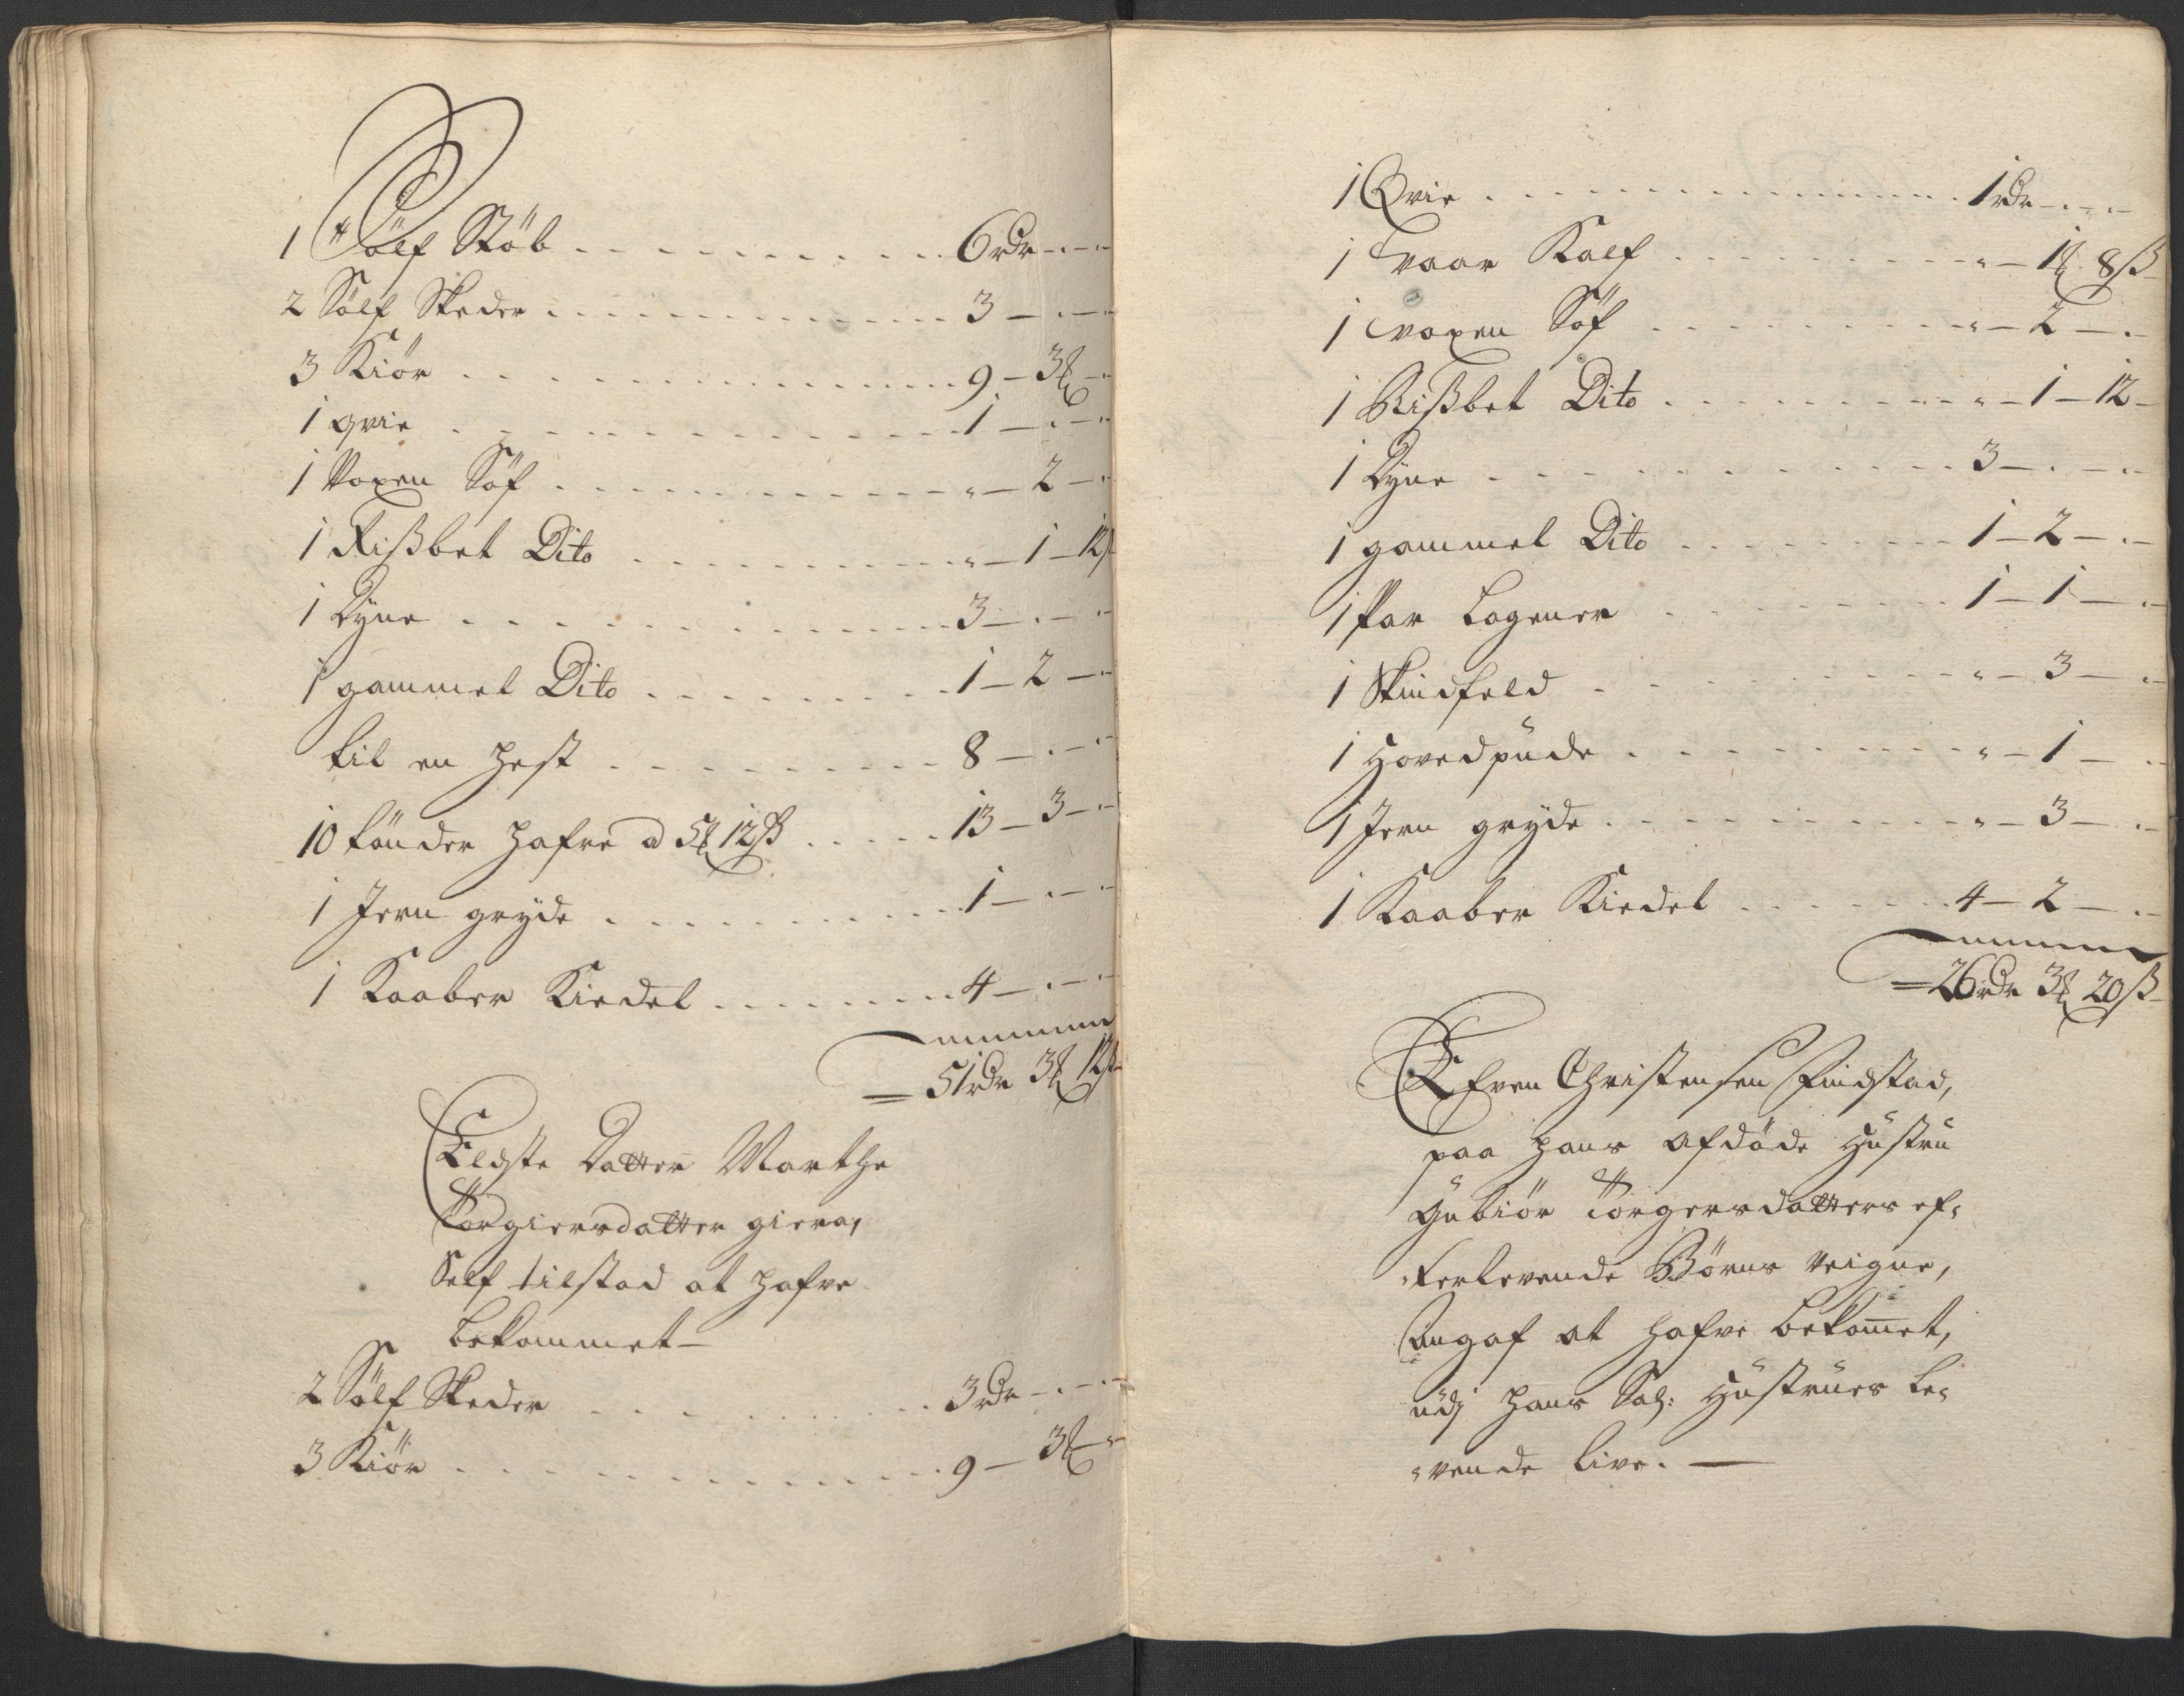 1 Sölf Støb . . . . . . . 6 rdr - . - "
2 Sölf Skeder . . . . . . . 3 - . - "
3 Kiör . . . . . . . 9 - 3 ₰ - "
1 qvie . . . . . . . 1 - . - "
1 Voxen Söf . . . . . . . " - 2 - "
1 Rißbet Dito . . . . . . . " - 1 - 12 ß
1 Dyne . . . . . . . 3 - . - "
1 gammel Dito . . . . . . . 1 - 2 - "
til en Hest . . . . . . . 8 - . - "
10 tönder Hafre a 5 ₰ 12 ß . . . . . 13 - 3 - "
1 Jern gryde . . . . . . . 1 - . - "
1 Kaaber Kiedel . . . . . . . 4 - . - "
= 51 rdr 3 ₰ 12 ß
Eldste Datter Marthe
Torgiersdatter giera,
Self tilstod at hafve
bekommet -
2 Sölf Skeder . . . . . . . 3 rdr - . - "
3 Kiör . . . . . . . 9 - 3 ₰ - "
1 Qvie . . . . . . . 1 rdr - . -
1 vaar Kalf . . . . . . . " - 1 ₰ 8 ß
1 voxen Söf . . . . . . . " - 2 - .
1 Rißbet Dito . . . . . . . " - 1 - 12 -
1 Dyne . . . . . . . 3 - . - "
1 gammel Dito . . . . . . . 1 - 2 - "
1 Par Lagener . . . . . . . 1 - 1 - "
1 Skindfeld . . . . . . . " - 3 - "
1 Hovedpude . . . . . . . " - 1 - "
1 Jern gryde . . . . . . . " - 3 - "
1 Kaaber Kiedel . . . . . . . 4 - 2 - "
= 26 rdr 3 ₰ 20 ß
Even Christensen Findstad,
paa hans afdöde Hustru
Gubiör Torgersdatters ef-
terlevende Börns veigne,
Angaf at hafve bekom̅et,
udj hans Sal: Hustrues le-
vende live. —